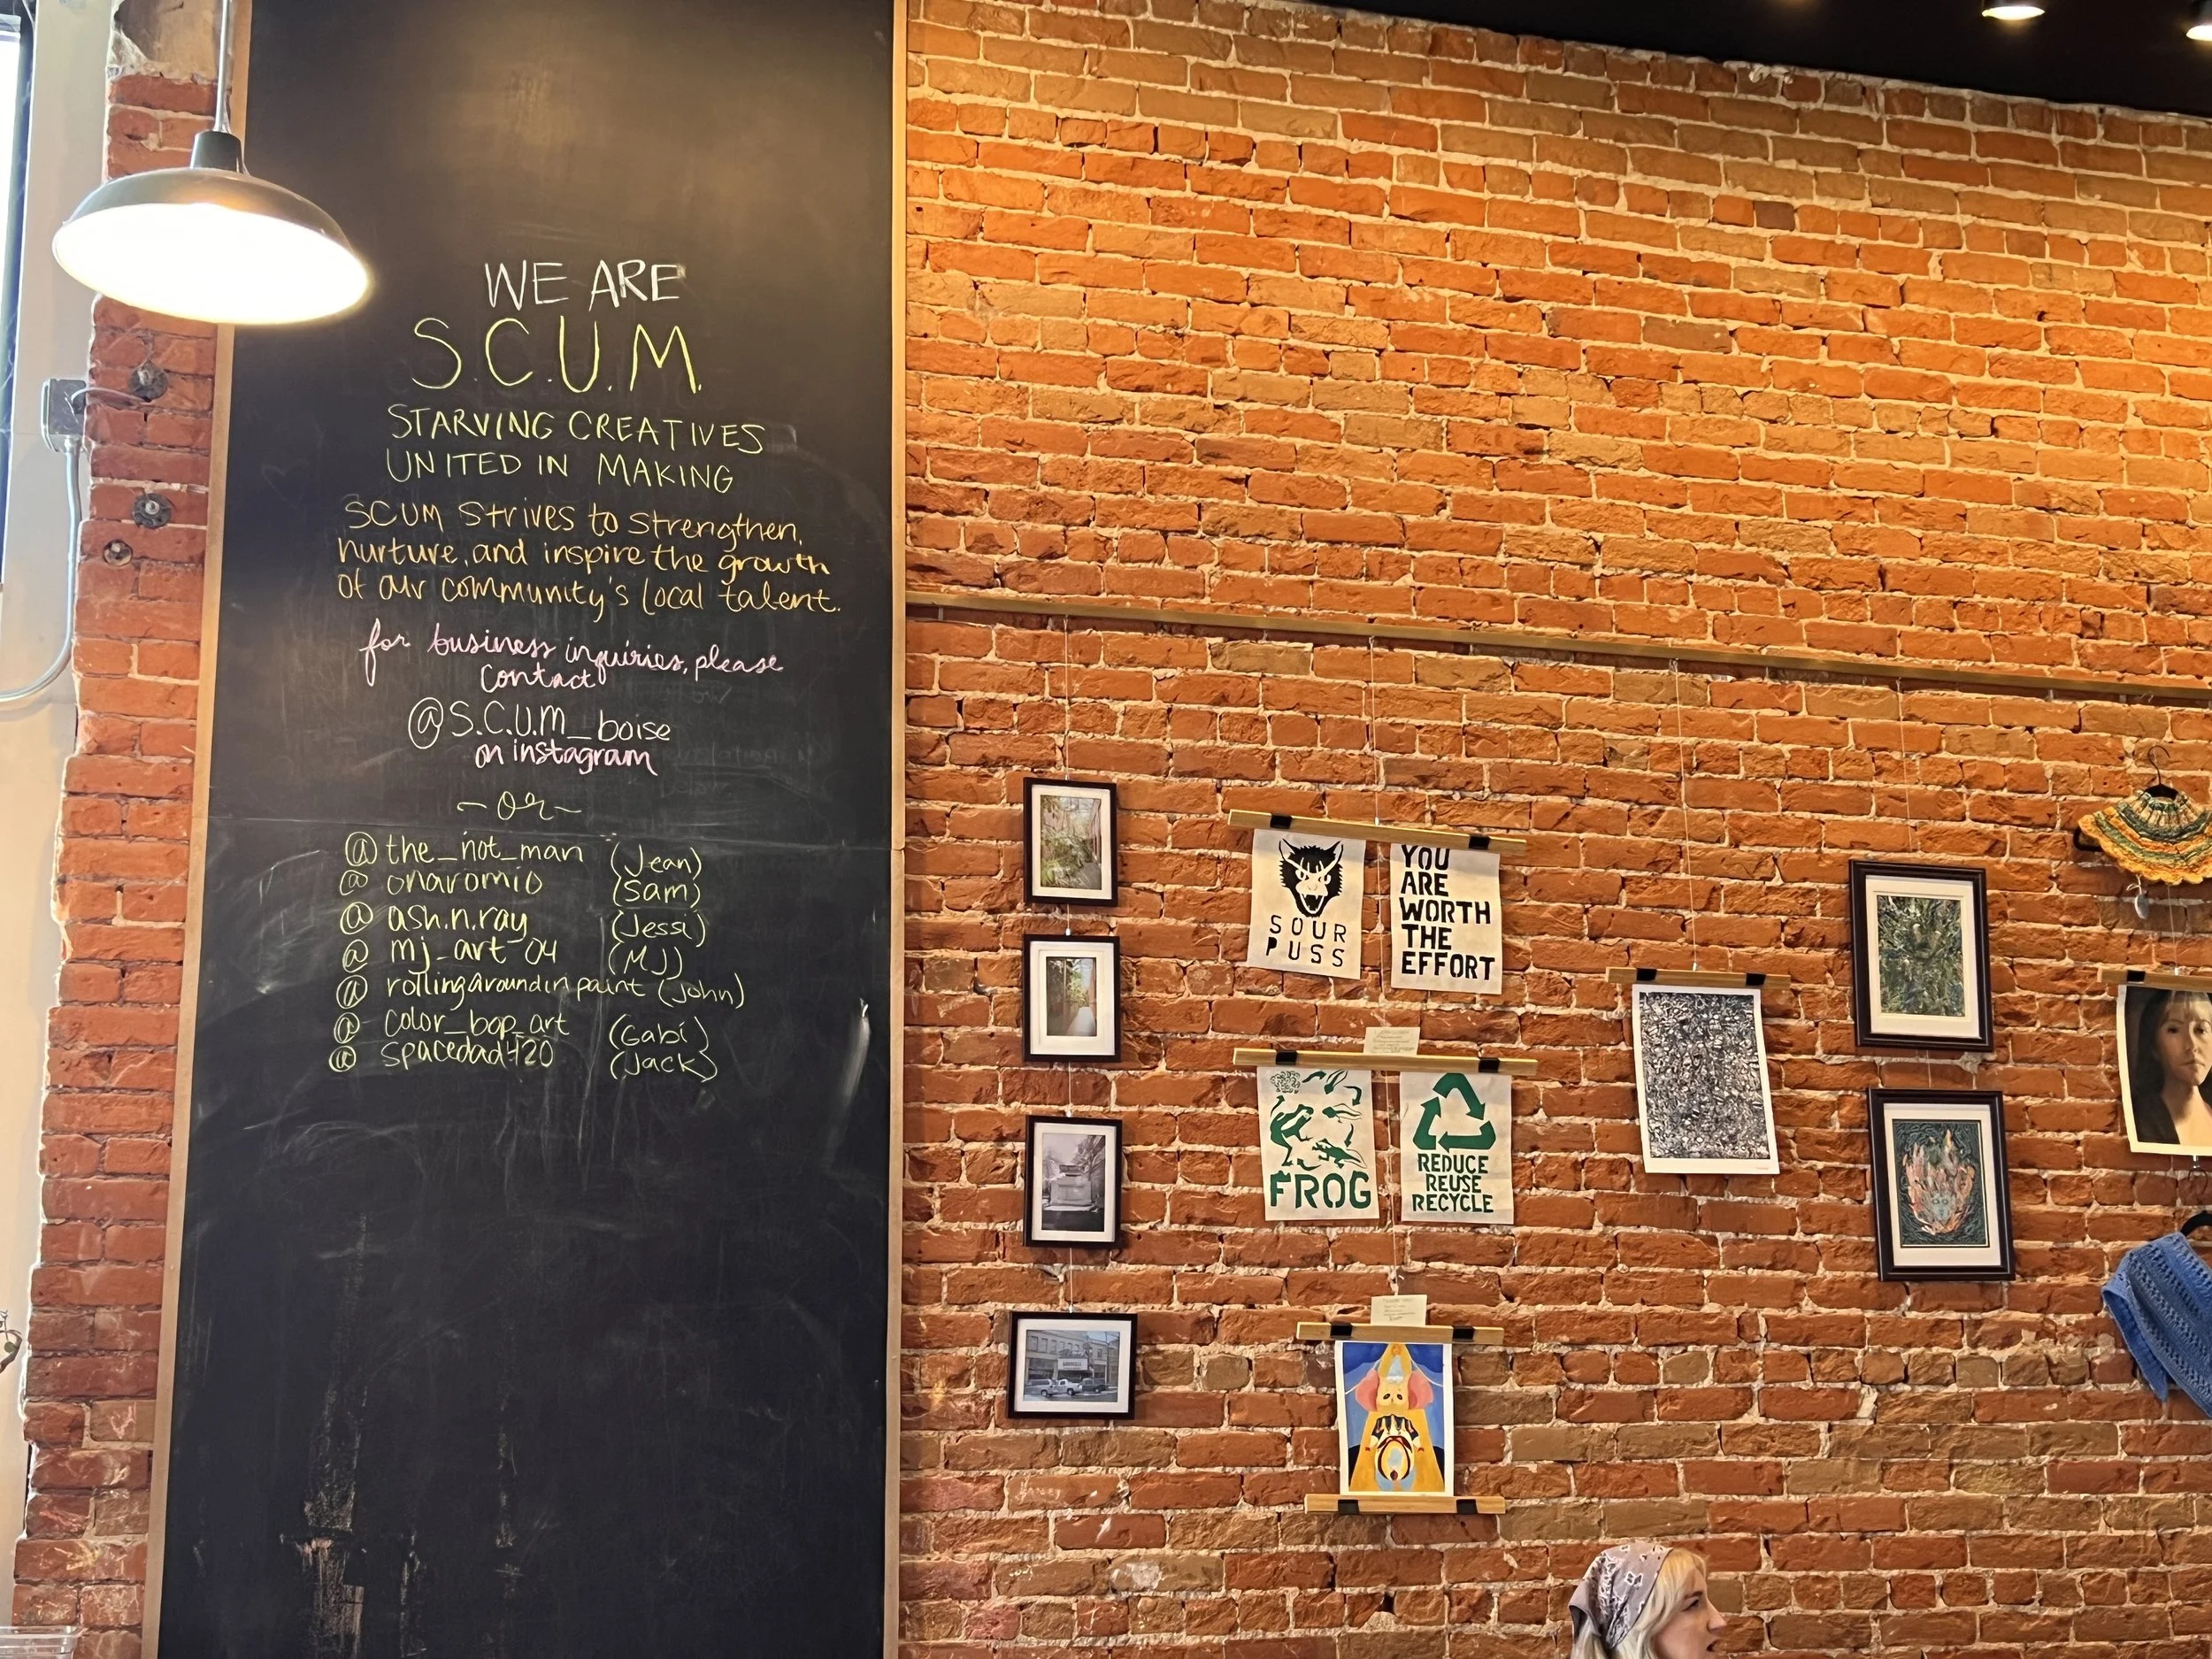 WE ARE
S.C.U.M.
STARVING CREATIVES
UNITED IN MAKING
SCUM strives to strengthen,
nurture, and inspire the growth
of our community's local talent.
for business inquiries, please
contact
@S.C.U.M_boise
on instagram
~or~
@the_not_man (Jean)
@onaromio (Sam)
@ash.n.ray (Jessi)
@mj_art_04 (MJ)
@rollingaroundinpaint (John)
@color_bop_art (Gabi)
@spacedad420 (Jack)
SOUR
PUSS
YOU
ARE
WORTH
THE
EFFORT
FROG
REDUCE
REUSE
RECYCLE